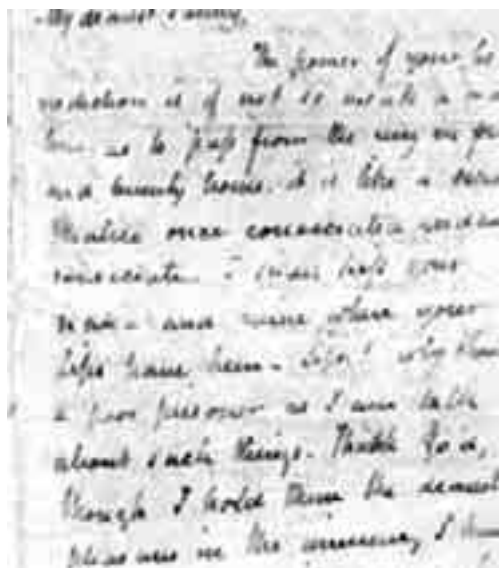 My dearest Fanny,
The power of your be
nediction is of not so weak a na
as to pass from the ring in fo
and twenty hours it is like a
Chalice once consecrated and
consecrate. I shall kiss your
name and mine where your
Lips have been - Lips! why
a poor prisoner as I am talk
about such things. Thank God,
though I hold them the dearest
pleasures in the universe, I